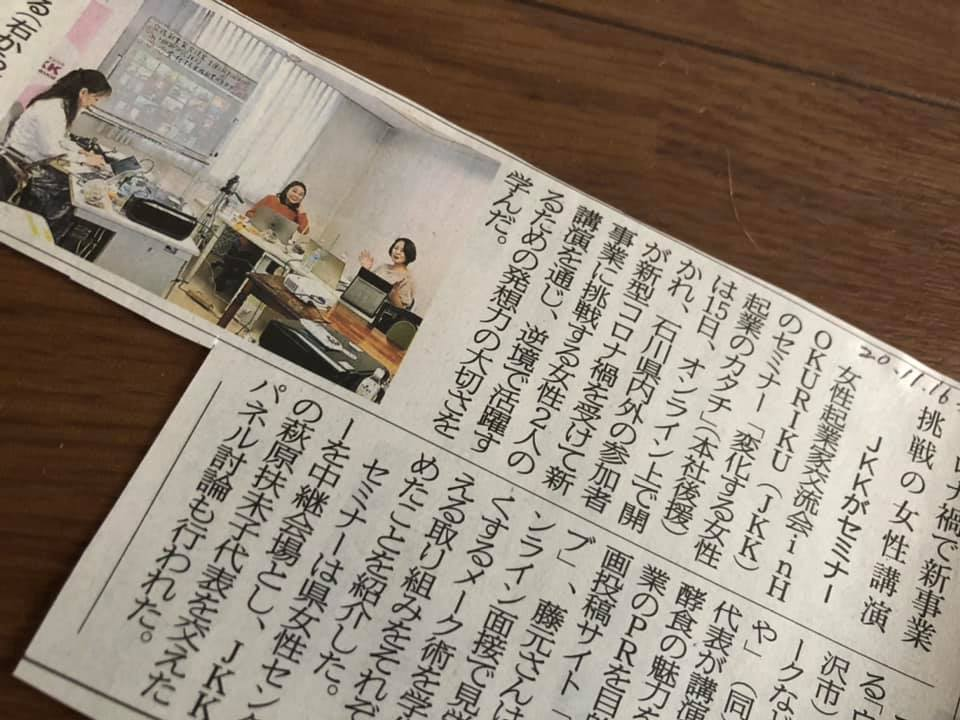 20.11.16
ナ禍で新事業
挑戦の女性講演
JKKがセミナー
女性起業家交流会inH
OKURIKU(JKK)
のセミナー「変化する女性
起業のカタチ」(本社後援)
は15日、オンライン上で開
かれ、石川県内外の参加者
が新型コロナ禍を受けて新
事業に挑戦する女性2人の
講演を通じ、逆境で活躍す
るための発想力の大切さを
学んだ。
る「
沢市)
ークな
や」(同)
代表が講演
酵食の魅力を
業のPRを目的
画投稿サイト「
ブ」、藤元さんは
ンライン面接で見
くするメーク術を学
える取り組みをそれぞ
めたことを紹介した。
セミナーは県女性セン
ーを中継会場とし、JKK
の萩原扶未子代表を交えた
パネル討論も行われた。
る(右から